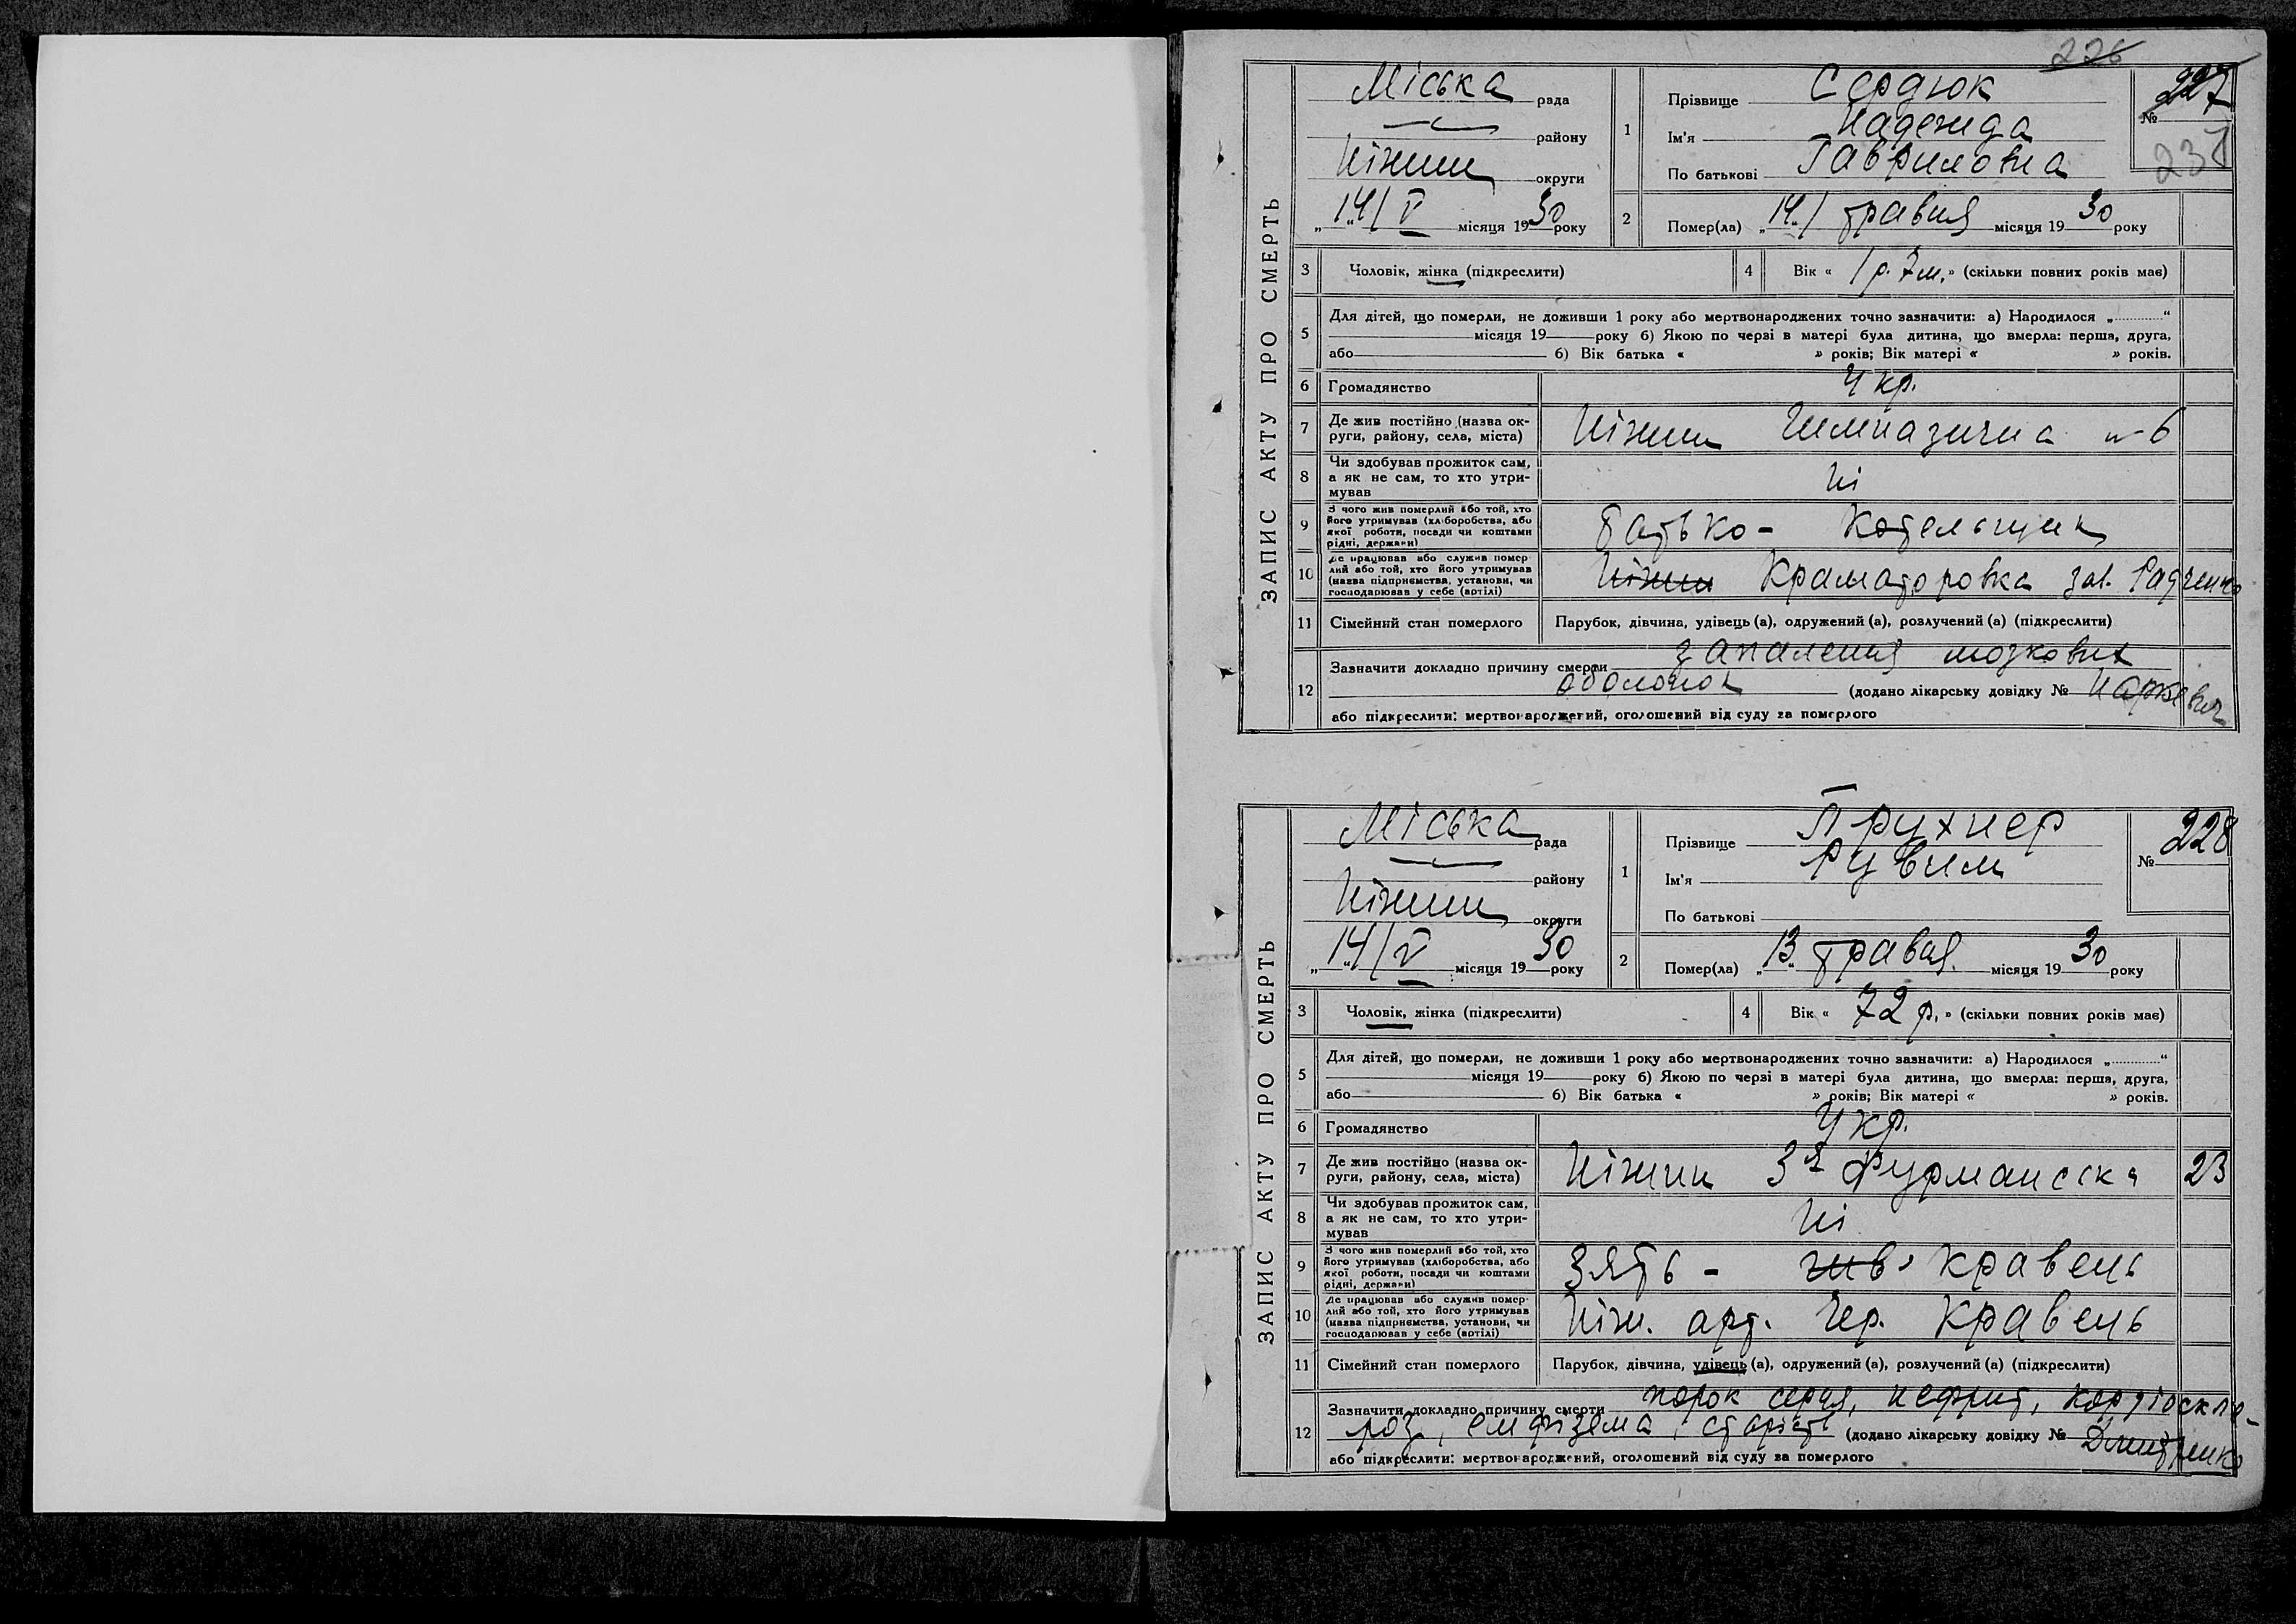 226
ЗАПИС АКТУ ПРО СМЕРТЬ
Міська рада
району
Ніжин округи
„14/V місяця 1930 року
1
Прізвище Сердюк
Ім'я Надежда
По батькові Гавриловна
№ 227
231
2 Помер(ла) „14" травня місяця 1930 року
3 Чоловік, жінка (підкреслити)
4 Вік « 1 р. 7 м. » (скільки повних років має)
5 Для дітей, що померли, не доживши 1 року або мертвонароджених точно зазначити: а) Народилося „ “
місяця 19 року б) Якою по черзі в матері була дитина, що вмерла: перша, друга,
або б) Вік батька « » років; Вік матері « » років.
6 Громадянство Укр.
7 Де жив постійно (назва ок-
руги, району, села, міста)
Ніжин Гимназична №6
8 Чи здобував прожиток сам,
а як не сам, то хто утри-
мував
Ні
9 З чого жив померлий або той, хто
його утримував (хліборобства, або
якої роботи, посади чи коштами
рідні, держави)
Батько - Котельщик
10 Де працював або служив помер-
лий або той, хто його утримував
(назва підприємства, установи, чи
господарював у себе (артілі)
Ніжин Краматоровка зав. Радченко
11 Сімейний стан померлого Парубок, дівчина, удівець (а), одружений (а), розлучений (а) (підкреслити)
12 Зазначити докладно причину смерти запалення мозкових
оболонок (додано лікарську довідку №
або підкреслити: мертвонароджений, оголошений від суду за померлого
ЗАПИС АКТУ ПРО СМЕРТЬ
Міська рада
району
Ніжин округи
„14/V місяця 1930 року
1
Прізвище Прухнер
Ім'я Рувим
По батькові
№ 228
2 Помер(ла) „13" травня місяця 1930 року
3 Чоловік, жінка (підкреслити)
4 Вік « 72 р. » (скільки повних років має)
5 Для дітей, що померли, не доживши 1 року або мертвонароджених точно зазначити: а) Народилося „ “
місяця 19 року б) Якою по черзі в матері була дитина, що вмерла: перша, друга,
або б) Вік батька « » років; Вік матері « » років.
6 Громадянство Укр.
7 Де жив постійно (назва ок-
руги, району, села, міста)
Ніжин 3я Фурманська 23
8 Чи здобував прожиток сам,
а як не сам, то хто утри-
мував
Ні
9 З чого жив померлий або той, хто
його утримував (хліборобства, або
якої роботи, посади чи коштами
рідні, держави)
Зять - Кравець
10 Де працював або служив помер-
лий або той, хто його утримував
(назва підприємства, установи, чи
господарював у себе (артілі)
Ніж. арт. Чер. Кравець
11 Сімейний стан померлого Парубок, дівчина, удівець (а), одружений (а), розлучений (а) (підкреслити)
12 Зазначити докладно причину смерти порок серця, нефрит, кардіоскле-
роз, емфізема, старість (додано лікарську довідку № Дмитренко
або підкреслити: мертвонароджений, оголошений від суду за померлого